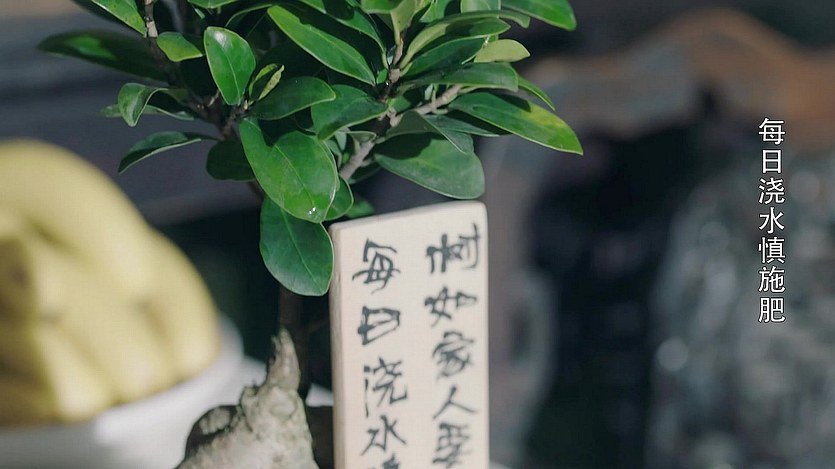 树如家人要
每日浇水
每日浇水慎施肥